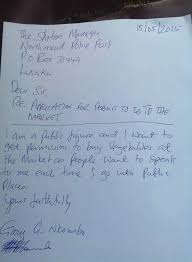 15/05/2015
The Station Manager
Northmead Police Post
P.O Box 31444
Lusaka
Dear Sir,
RE: APPLICATION FOR PERMIT TO GO TO THE
MARKET
I am a Public figure and I want to
get permission to buy vegetables at
the Market as People want to speak
to me each time I go into Public
Places
Yours faithfully
Gary G. Nkombo